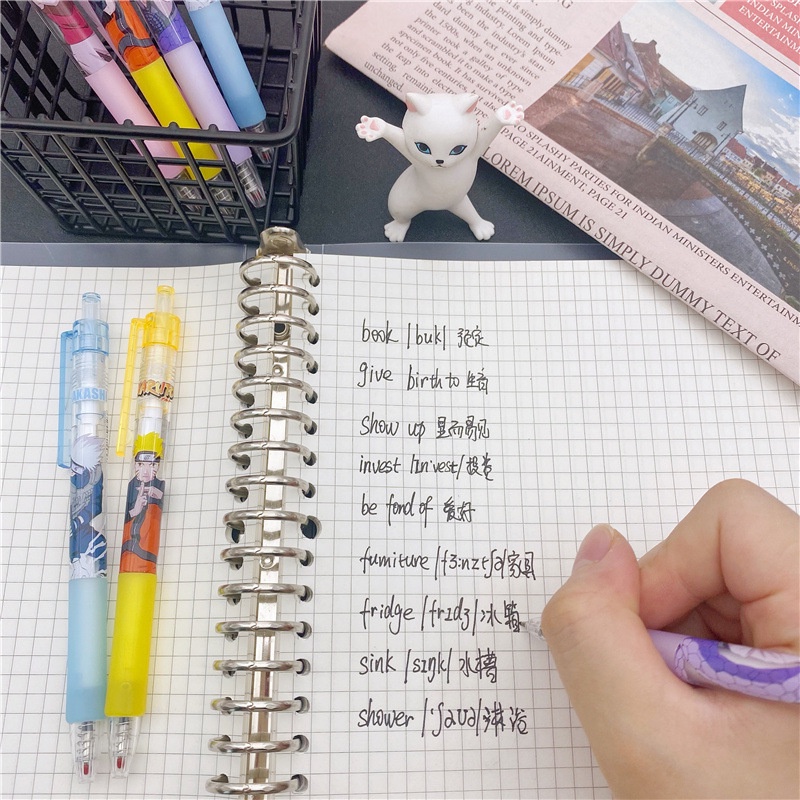 simply dummy
of the printing and type
Lorem Ipsum
dard dummy text ever
since the 1500s, when an unknown
printer took a galley of type
specimen book. It has survived
not only five centuries, but also
the leap into electronic
unchanged.
INDIAN MINISTERS
ENTERTAINMENT
TO SPLASHY PARTIES FOR INDIAN MINISTERS ENTERTAINMEN
PAGE 21AINMENT, PAGE 21
LOREM IPSUM IS SIMPLY DUMMY TEXT OF
AKASH
NARUTO
book |buk| 预定
give birth to 生育
show up 显而易见
invest /ɪn'vest/ 投资
be fond of 爱好
fumiture /fɜ:nɪtʃə/ 家具
fridge /frɪdʒ/ 冰箱
sink /sɪŋk/ 水槽
shower /'ʃaʊə/ 淋浴